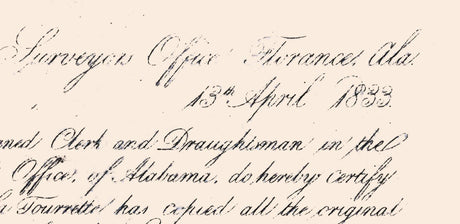 Surveyors Office Florance, Ala
13th April 1833.
ned Clerk and Draughtsman in the
Office, of Alabama, do, hereby certify
a Tourrette has copied all the original